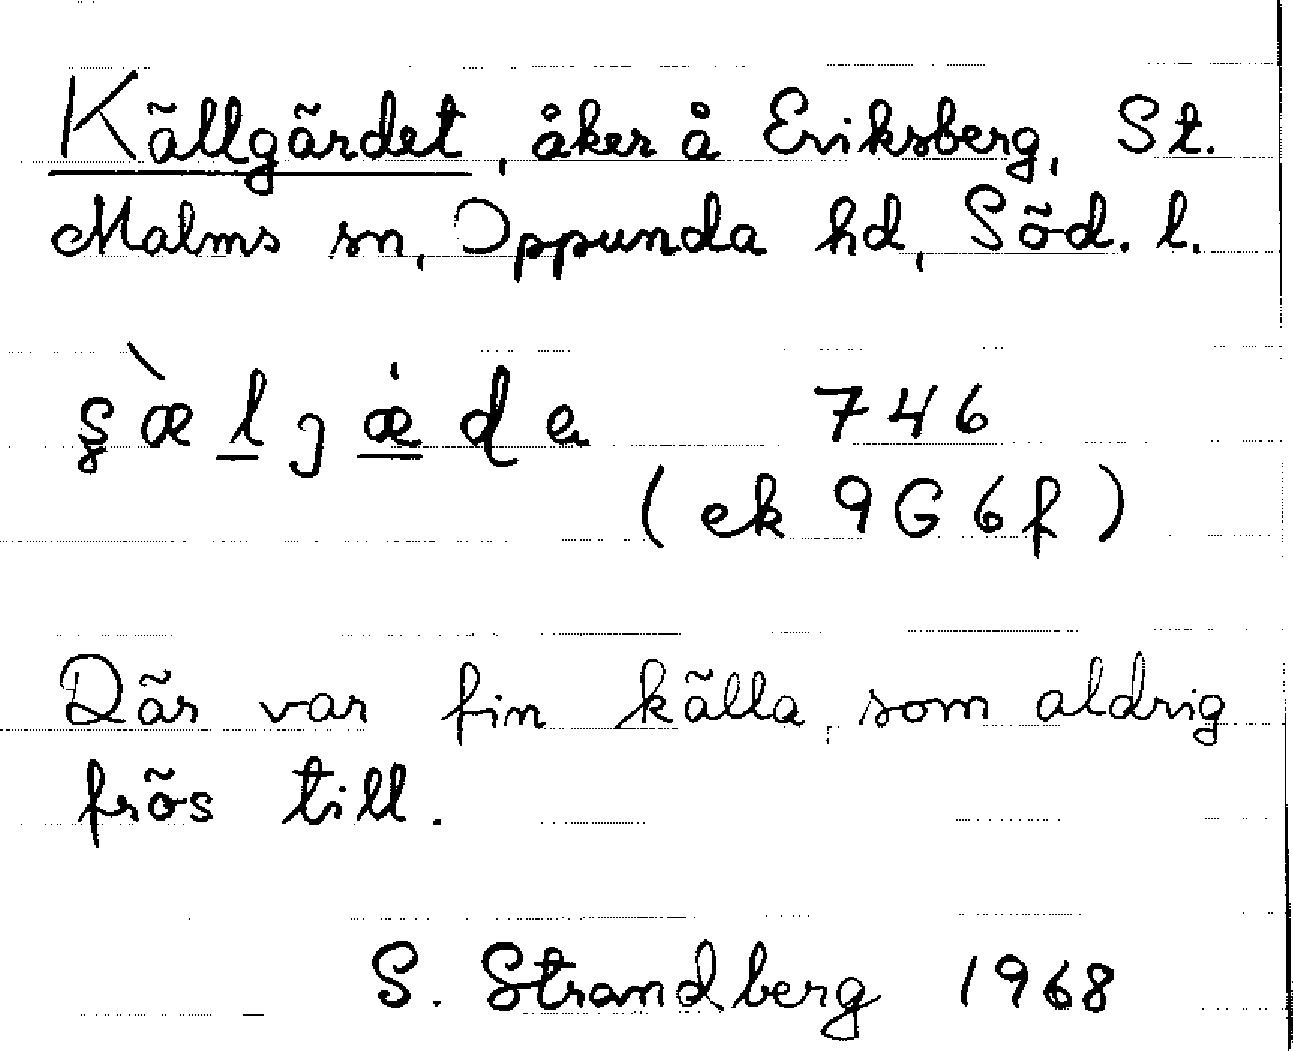 Källgärdet, åker å Eriksberg, St.
Malms sn, Oppunda hd, Söd. l.
ʂæ̀l̲ɟæ̲̇de 746
(ek 9G6f)
Där var fin källa, som aldrig
frös till.
S. Strandberg 1968